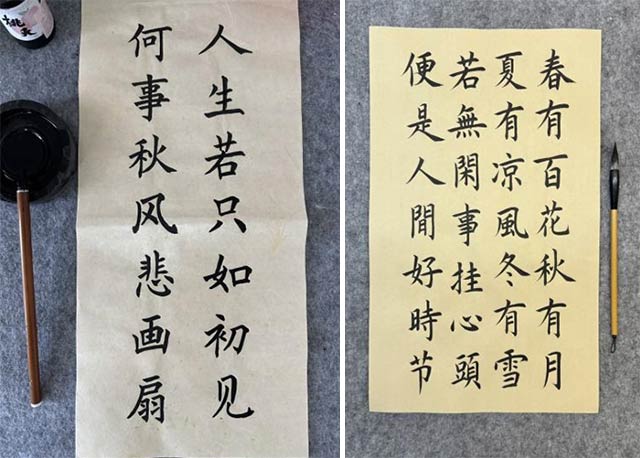 人生若只如初见
何事秋风悲画扇
春有百花秋有月
夏有凉風冬有雪
若無閑事挂心頭
便是人間好時节